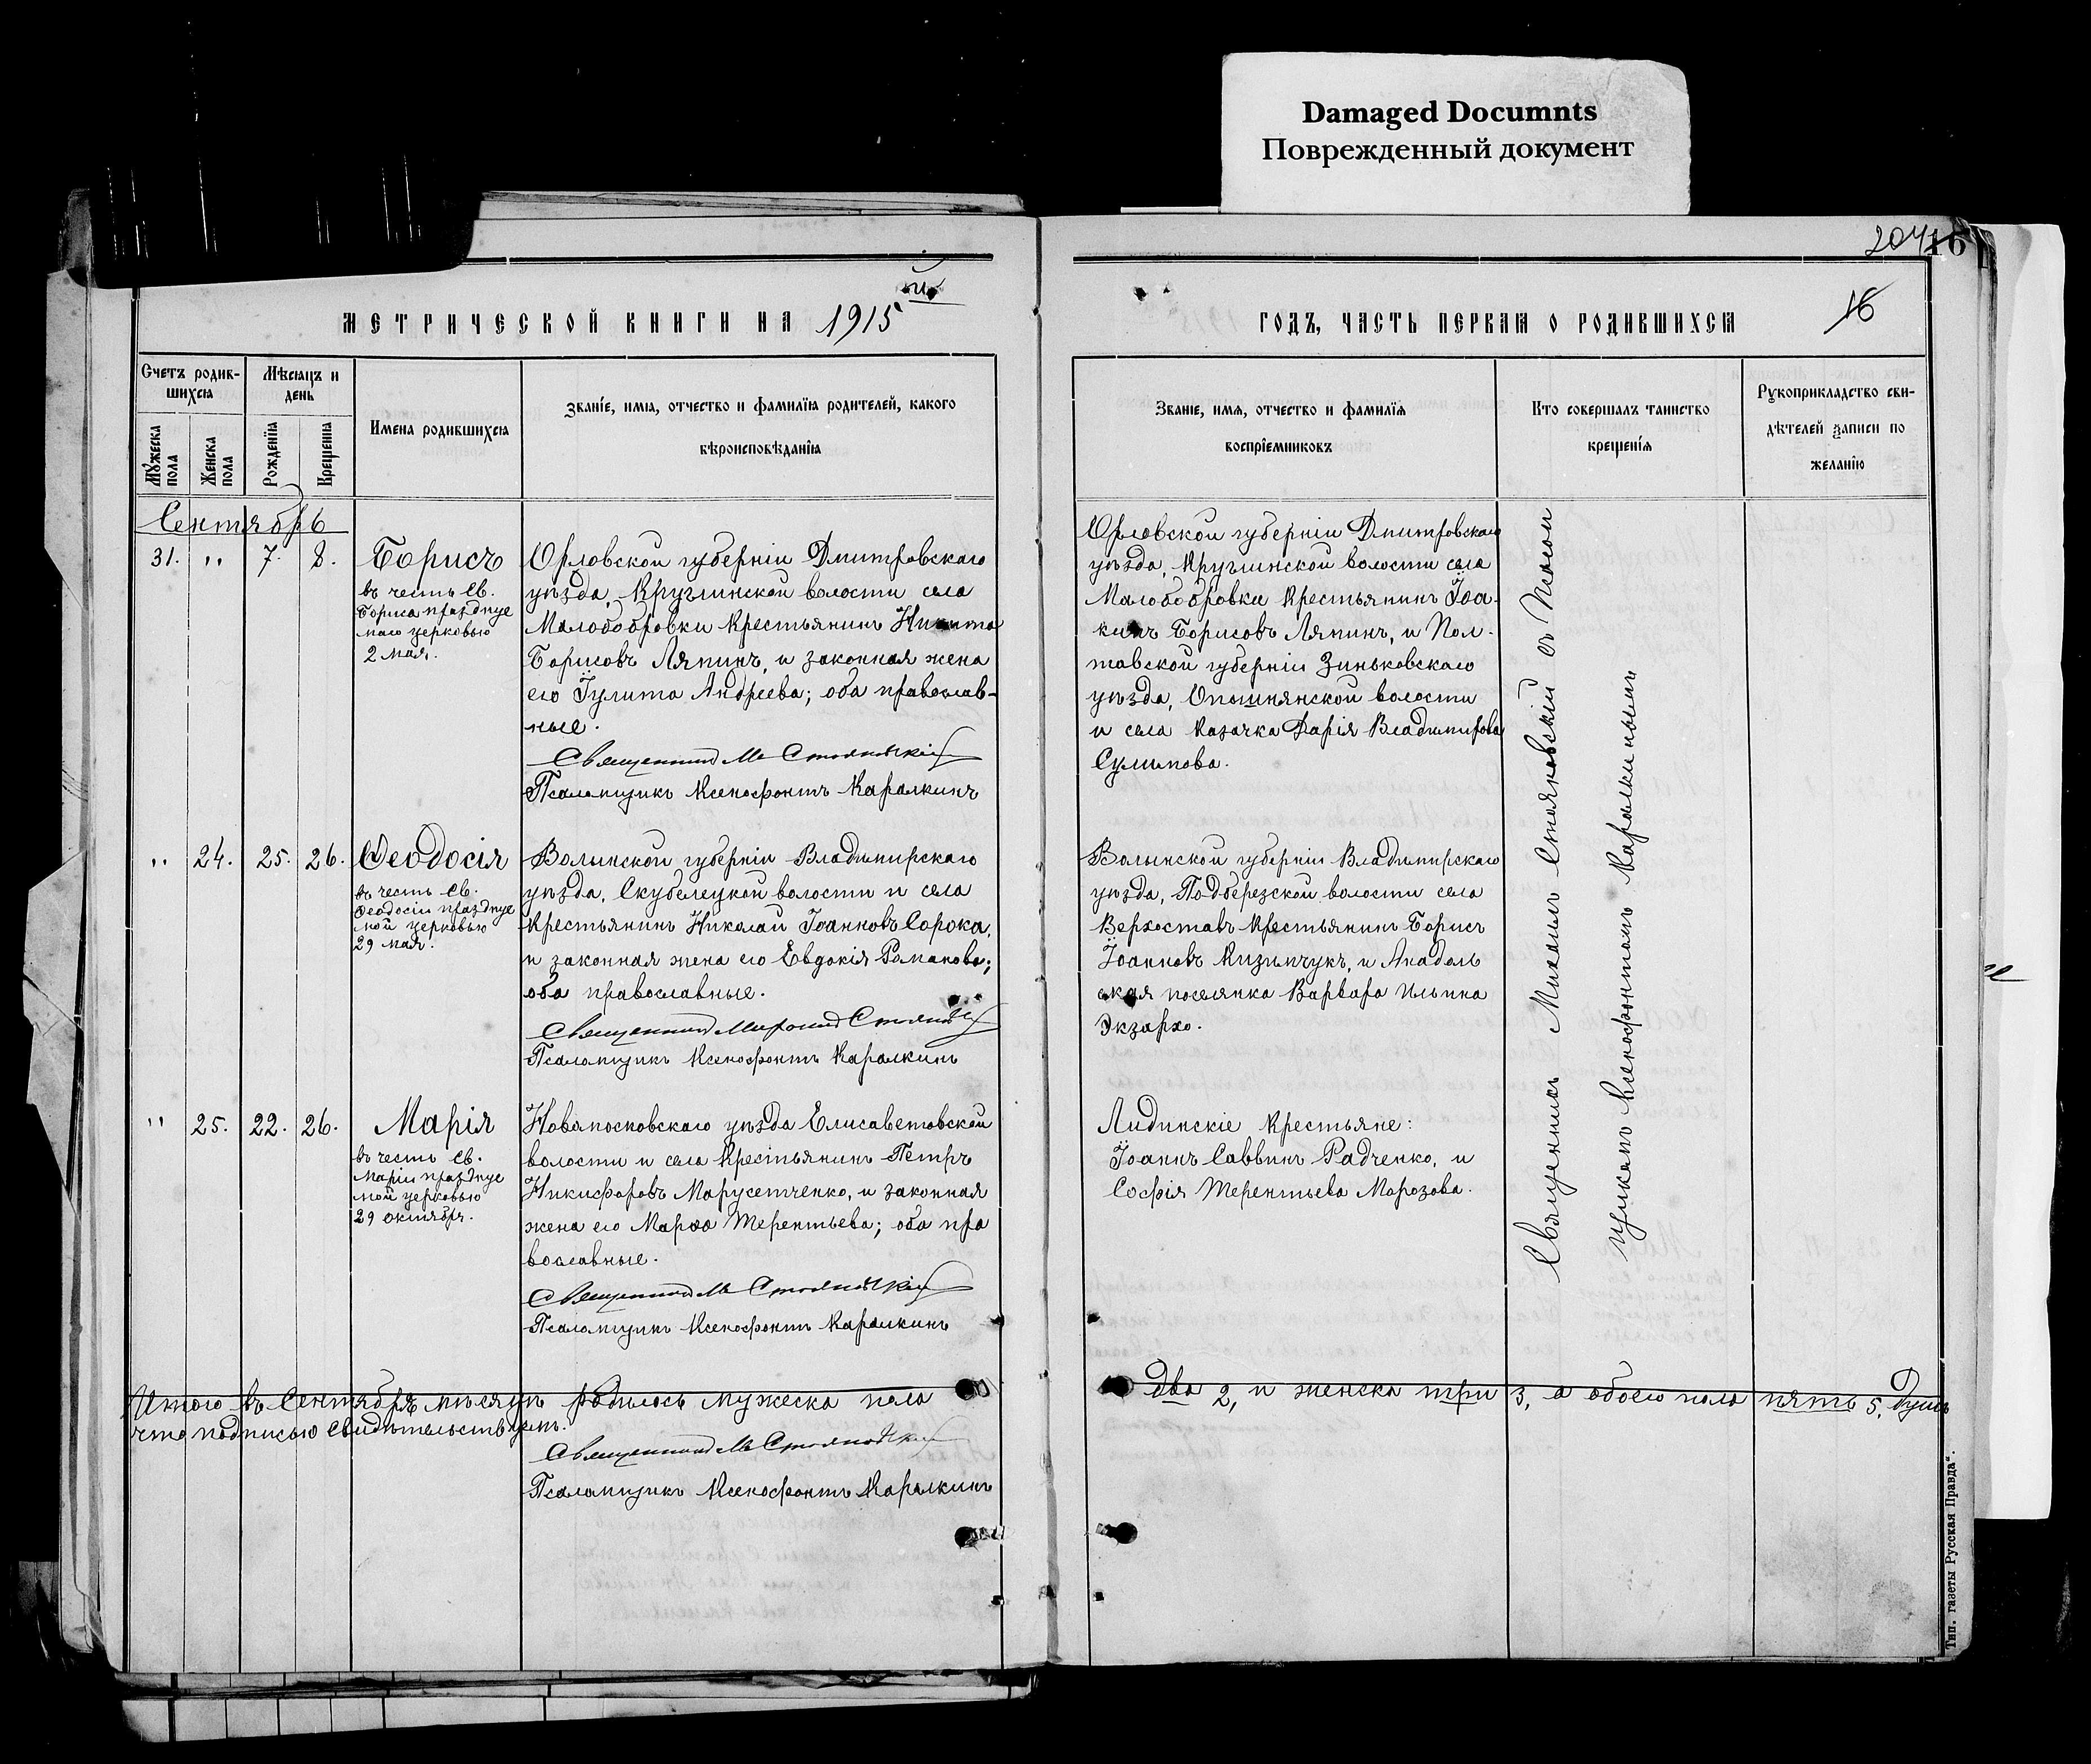 Damaged Documnts
Поврежденный документ
204
16
МЕТРИЧЕСКОЙ КНИГИ НА 1915
й
ГОДЪ, ЧАСТЬ ПЕРВАЯ О РОДИВШИХСЯ
16
Счетъ родив-
шихся
Мѣсяцъ и
день
Мужеска
пола
Женска
пола
Рожденія
Крещенія
Имена родившихся
Званіе, имя, отчество и фамилія родителей, какого
вѣроисповѣданія
Званіе, имя, отчество и фамилія
воспріемниковъ
Кто совершалъ таинство
крещенія
Рукоприкладство сви-
дѣтелей записи по
желанію
Сентябрь
31. " 7. 8.
Борисъ
въ честь Св.
Бориса праздnуе
маго церковью
2 мая.
Орловской губерніи Дмитровскаго
уѣзда, Круглинской волости села
Малобобровки Крестьянинъ Никита
Борисовъ Ляпинъ, и законная жена
его Іулита Андреева; оба православ-
ные.
Священникъ М Стояновскій
Псаломщикъ Ксенофонтъ Каралкинъ
Орловской губерніи Дмитровскаго
уѣзда, Круглинской волости села
Малобобровки Крестьянинъ Іоа-
кимъ Борисовъ Ляпинъ, и Пол-
тавской губерніи Зиньковскаго
уѣзда, Опошнянской волости
и села казачка Дарія Владимирова
Сулимова.
" 24. 25. 26.
Ѳеодосія
въ честь Св.
Ѳеодосіи празднуе
мой церковью
29 мая.
Волынской губерніи Владимирскаго
уѣзда, Скубелецкой волости и села
Крестьянинъ Николай Іоанновъ Сорока,
и законная жена его Евдокія Романова;
оба православные.
Псаломщикъ Ксенофонтъ Каралкинъ
Волынской губерніи Владимирскаго
уѣзда, Подберезской волости села
Верхоставъ Крестьянинъ Борисъ
Іоанновъ Кизимчукъ, и Анадоль
ская поселянка Варвара Ильина
Экзархо.
" 25. 22. 26.
Марія
въ честь Св.
Маріи празднуе
мой церковью
29 октября.
Новомосковскаго уѣзда Елисаветовской
волости и села Крестьянинъ Петръ
Никифоровъ Марусетченко, и законная
жена его Марѳа Терентьева; оба пра
вославные.
Священникъ М Стояновскій
Псаломщикъ Ксенофонтъ Каралкинъ
Лидинскіе Крестьяне:
Іоаннъ Саввинъ Радченко, и
Софія Терентьева Морозова.
Священникъ Михаилъ Стояновскій съ Псалом
щикомъ Ксенофонтомъ Каралкинымъ
Итого въ Сентябрѣ мѣсяцѣ родилось мужеска пола
два 2, и женска три 3, а обоего пола пять 5. душъ
что подписью свидѣтельствуемъ.
Священникъ М Стояновскій
Псаломщикъ Ксенофонтъ Каралкинъ
Тип. газеты „Русская Правда“.